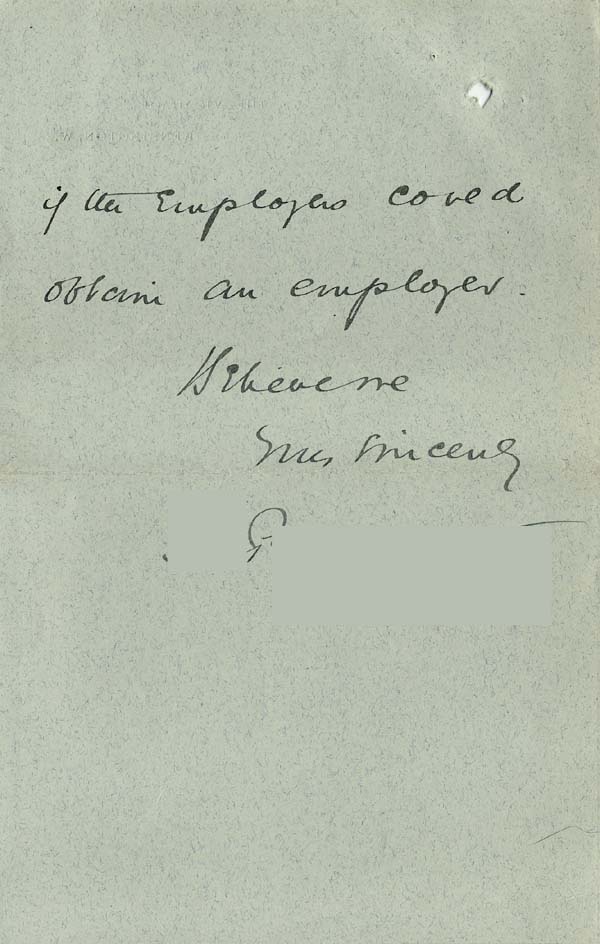 if the Employers could
obtain an employer.
Believe me
Yrs. Sincerely